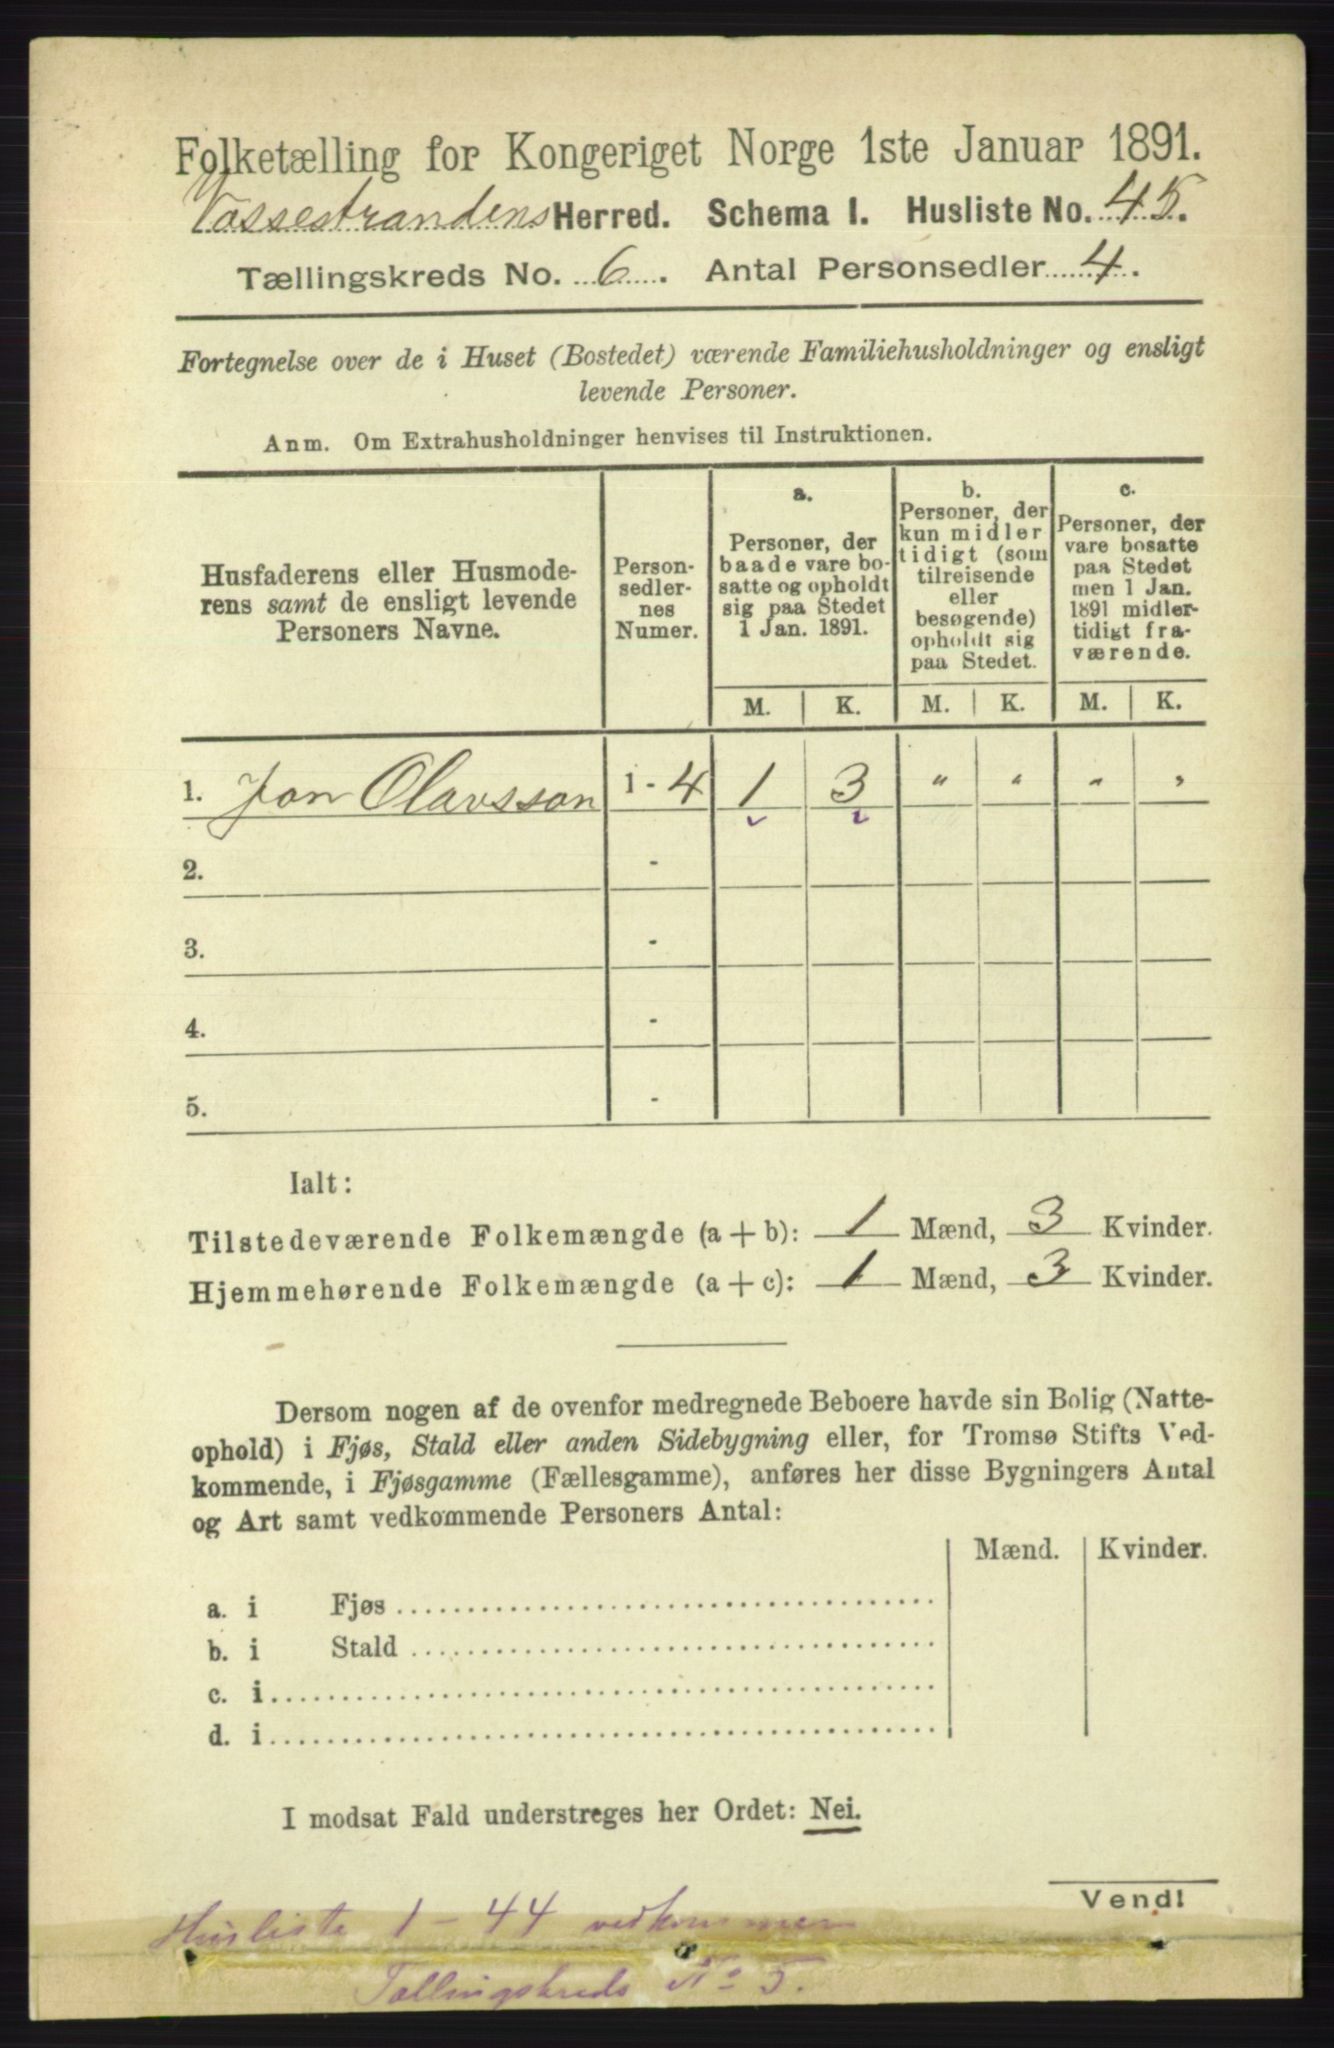 Folketælling for Kongeriget Norge 1ste Januar 1891.
Vossestrandens Herred. Schema I. Husliste No. 45.
Tællingskreds No. 6. Antal Personsedler 4.
Fortegnelse over de i Huset (Bostedet) værende Familiehusholdninger og ensligt
levende Personer.
Anm. Om Extrahusholdninger henvises til Instruktionen.
Husfaderens eller Husmode-
rens samt de ensligt levende
Personers Navne.
Person-
sedler-
nes
Numer.
a.
Personer, der
baade vare bo-
satte og opholdt
sig paa Stedet
1 Jan. 1891.
b.
Personer, der
kun midler
tidigt (som
tilreisende
eller
besøgende)
opholdt sig
paa Stedet.
c.
Personer, der
vare bosatte
paa Stedet
men 1 Jan.
1891 midler-
tidigt fra-
værende.
M. K. M. K. M. K.
1. Jon Olavsson 1 - 4 1 3 " " " "
2. -
3. -
4. -
5. -
Ialt:
Tilstedeværende Folkemængde (a + b): 1 Mænd, 3 Kvinder.
Hjemmehørende Folkemængde (a + c): 1 Mænd, 3 Kvinder.
Dersom nogen af de ovenfor medregnede Beboere havde sin Bolig (Natte-
ophold) i Fjøs, Stald eller anden Sidebygning eller, for Tromsø Stifts Ved-
kommende, i Fjøsgamme (Fællesgamme), anføres her disse Bygningers Antal
og Art samt vedkommende Personers Antal:
Mænd. Kvinder.
a. i Fjøs
b. i Stald
c. i
d. i
I modsat Fald understreges her Ordet: Nei.
Vend!
Husliste 1 - 44 vedkommer
Tællingskreds No 5.